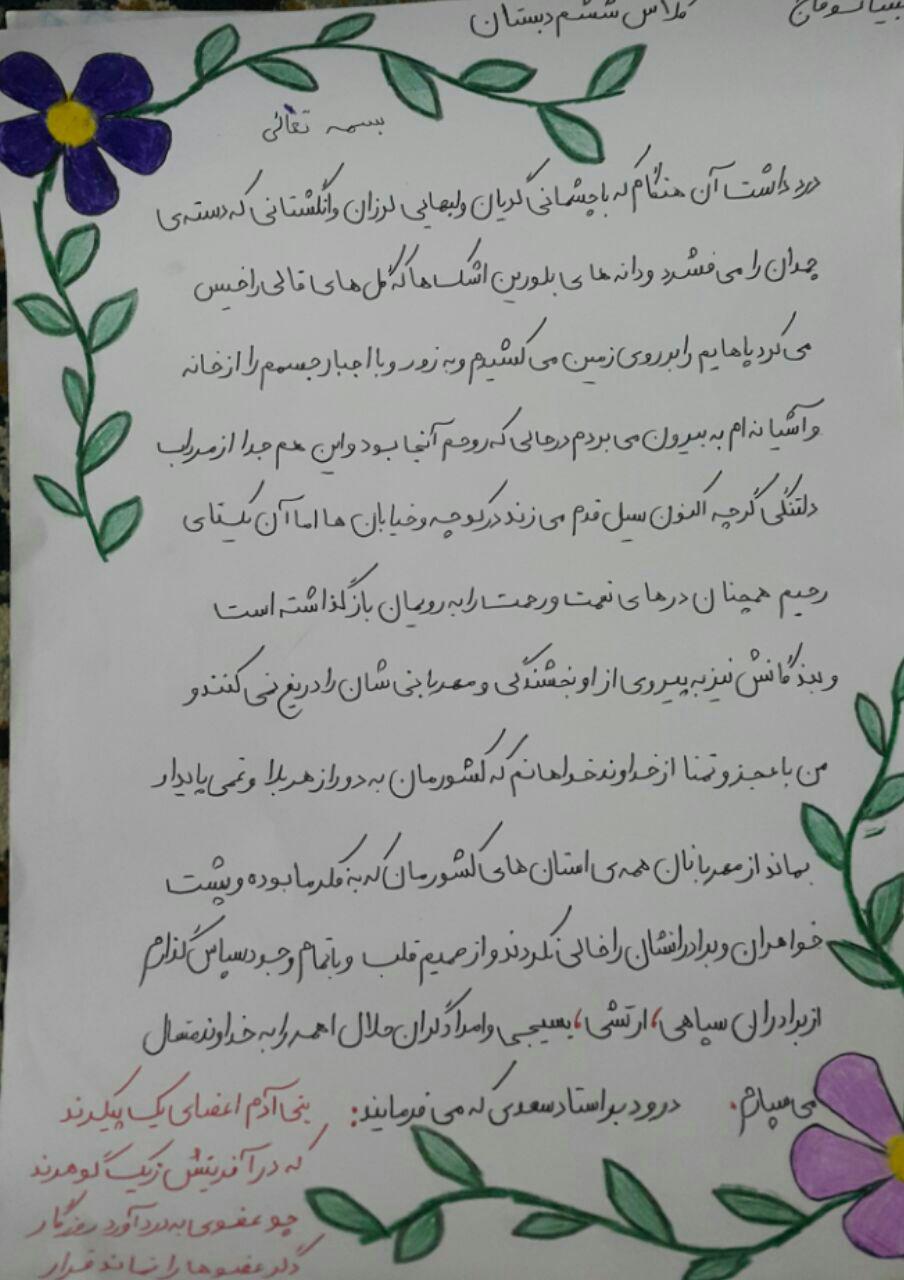 کلاس ششم دبستان
بسمه تعالی
درد داشت آن هنگام که با چشمانی گریان ولبهایی لرزان وانگشتانی که دسته ی
چمدان را می فشرد و دانه های بلورین اشک ها که گل های قالی را خیس
می کرد پاهایم را بر روی زمین می کشیدم و به زور و با اجبار جسمم را از خانه
و آشیانه ام به بیرون می بردم درحالی که روحم آنجا بود و این هم جدا از
دلتنگی گرچه اکنون سیل قدم می زند در کوچه و خیابان ها اما آن یکتای
رحیم همچنان درهای نعمت و رحمت را به رویمان باز گذاشته است
و بندگانش نیز به پیروی از او بخشندگی و مهربانی شان را دریغ نمی کنند و
من با عجز و تمنا از خداوند خواهانم که کشورمان به دور از هر بلا و غمی پایدار
بماند از مهربانان همه ی استان های کشورمان که به فکر ما بوده و پشت
خواهران و برادرانشان را خالی نکردند و از صمیم قلب و با تمام وجود سپاس گذارم
از برادران سپاهی، ارتشی، بسیجی و امدادگران هلال احمر را به خداوند متعال
می سپارم. درود بر استاد سعدی که می فرمایند: بنی آدم اعضای یک پیکرند
که در آفرینش ز یک گوهرند
چو عضوی به درد آورد روزگار
دگر عضوها را نماند قرار